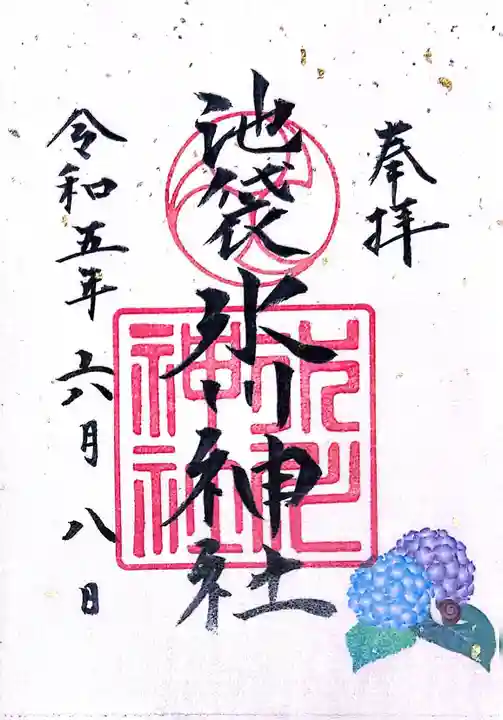 奉拝
池袋氷川神社
氷川
神社
令和五年六月八日